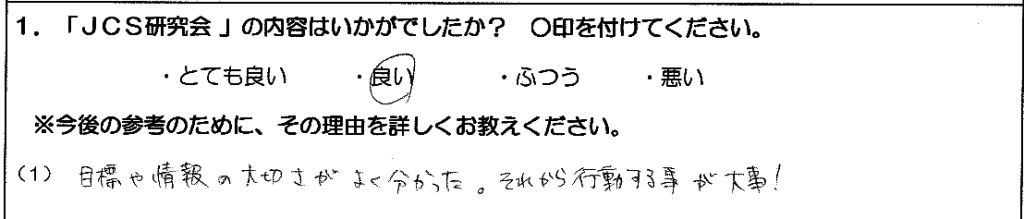 1．「ＪＣＳ研究会 」の内容はいかがでしたか？　〇印を付けてください。
・とても良い　・良い　・ふつう　・悪い
※今後の参考のために、その理由を詳しくお教えください。
(1) 目標や情報の大切さがよく分かった。それから行動する事が大事！